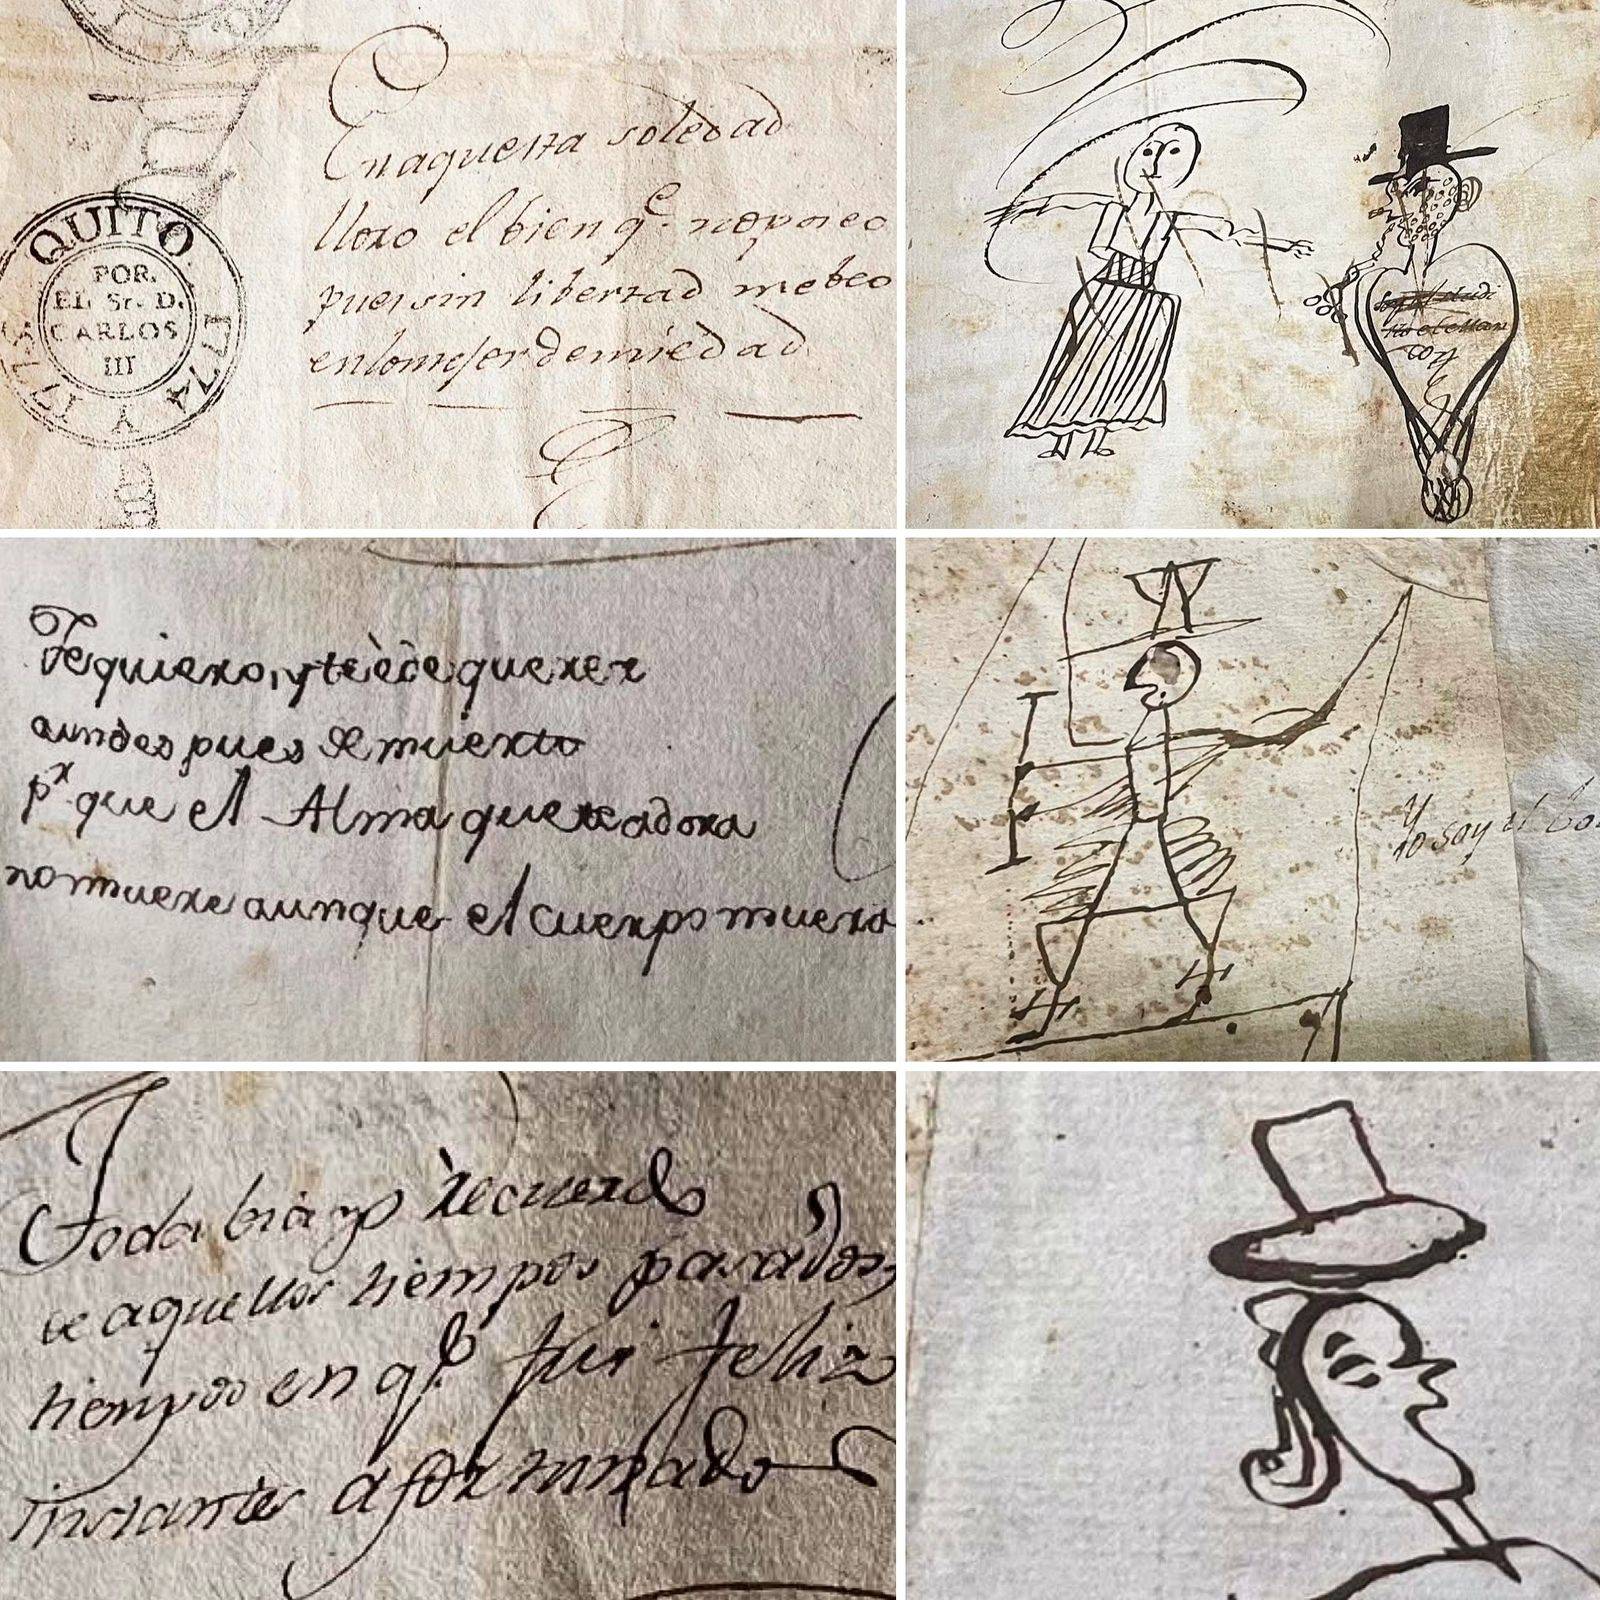 QUITO
POR
EL Sr. D.
CARLOS
III
1773 Y 1774
En aquesta soledad
lloro el bien qe. no poseo
pues sin libertad me beo
en lo mejor de mi edad
Te quiero, y te è de querer
aun despues de muerto
pr. que el Alma queredora
no muere aunque el cuerpo muera
Yo soy el
Toda bia yo recuerdo
de aquellos tiempos pasados,
tiempos en qe. fui feliz
instantes afortunados